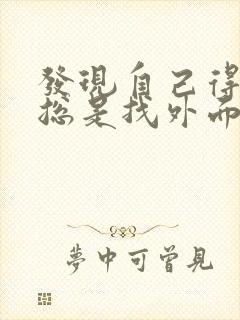 發現自己得
總是找外面
夢中可曾見